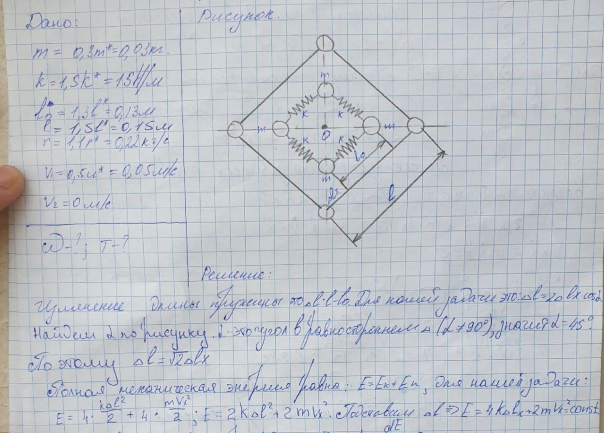 Дано:
m = 0,3m* = 0,03кг.
k = 1,5k* = 15Н/м
l₀ = 1,3l* = 0,13м
l = 1,5l* = 0,15м
r = 1,1r* = 0,22кг/с
V₁ = 0,5u* = 0,05м/с
V₂ = 0м/с
T-?
Рисунок.
m
k k
m O m
k k
m
l₀
l
Решение:
Изменение длины пружины это Δl=l-l₀. Для нашей задачи это: Δl=2Δlx cosα
Найдем α по рисунку. α-это угол в равностороннем Δ (90°), значит α=45°
Поэтому Δl=√2Δlx
Полная механическая энергия равна: E=Eк+Eп, для нашей задачи:
E=4·kΔl²/2+4·mVx²/2; E=2kΔl²+2mVx². Подставим Δl ⇒ E=4kΔlx+2mVx²=const
dE